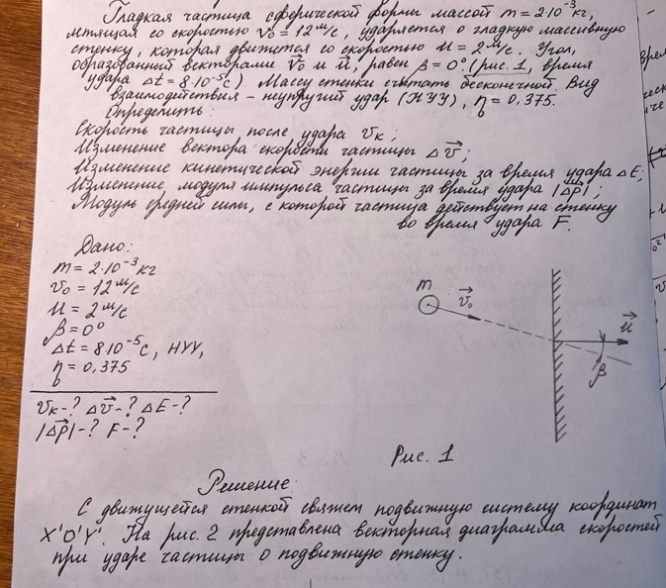 Гладкая частица сферической формы массой m = 2·10⁻³ кг,
летящая со скоростью v₀ = 12 м/с, ударяется о гладкую массивную
стенку, которая движется со скоростью u = 2 м/с. Угол,
образованный векторами v⃗₀ и u⃗, равен β = 0° (рис. 1, время
удара Δt = 8·10⁻⁵ с). Массу стенки считать бесконечной. Вид
взаимодействия – неупругий удар (НУУ), η = 0,375.
Определить:
Скорость частицы после удара vк;
Изменение вектора скорости частицы Δv⃗;
Изменение кинетической энергии частицы за время удара ΔE;
Изменение модуля импульса частицы за время удара |Δp⃗|;
Модуль средней силы, с которой частица действует на стенку
во время удара F.
Дано:
m = 2·10⁻³ кг
v₀ = 12 м/с
u = 2 м/с
β = 0°
Δt = 8·10⁻⁵ с, НУУ,
η = 0,375
vк - ? Δv⃗ - ? ΔE - ?
|Δp⃗| - ? F - ?
m
v⃗₀
u⃗
β
Рис. 1
Решение:
С движущейся стенкой свяжем подвижную систему координат
X'O'Y'. На рис. 2 представлена векторная диаграмма скоростей
при ударе частицы о подвижную стенку.